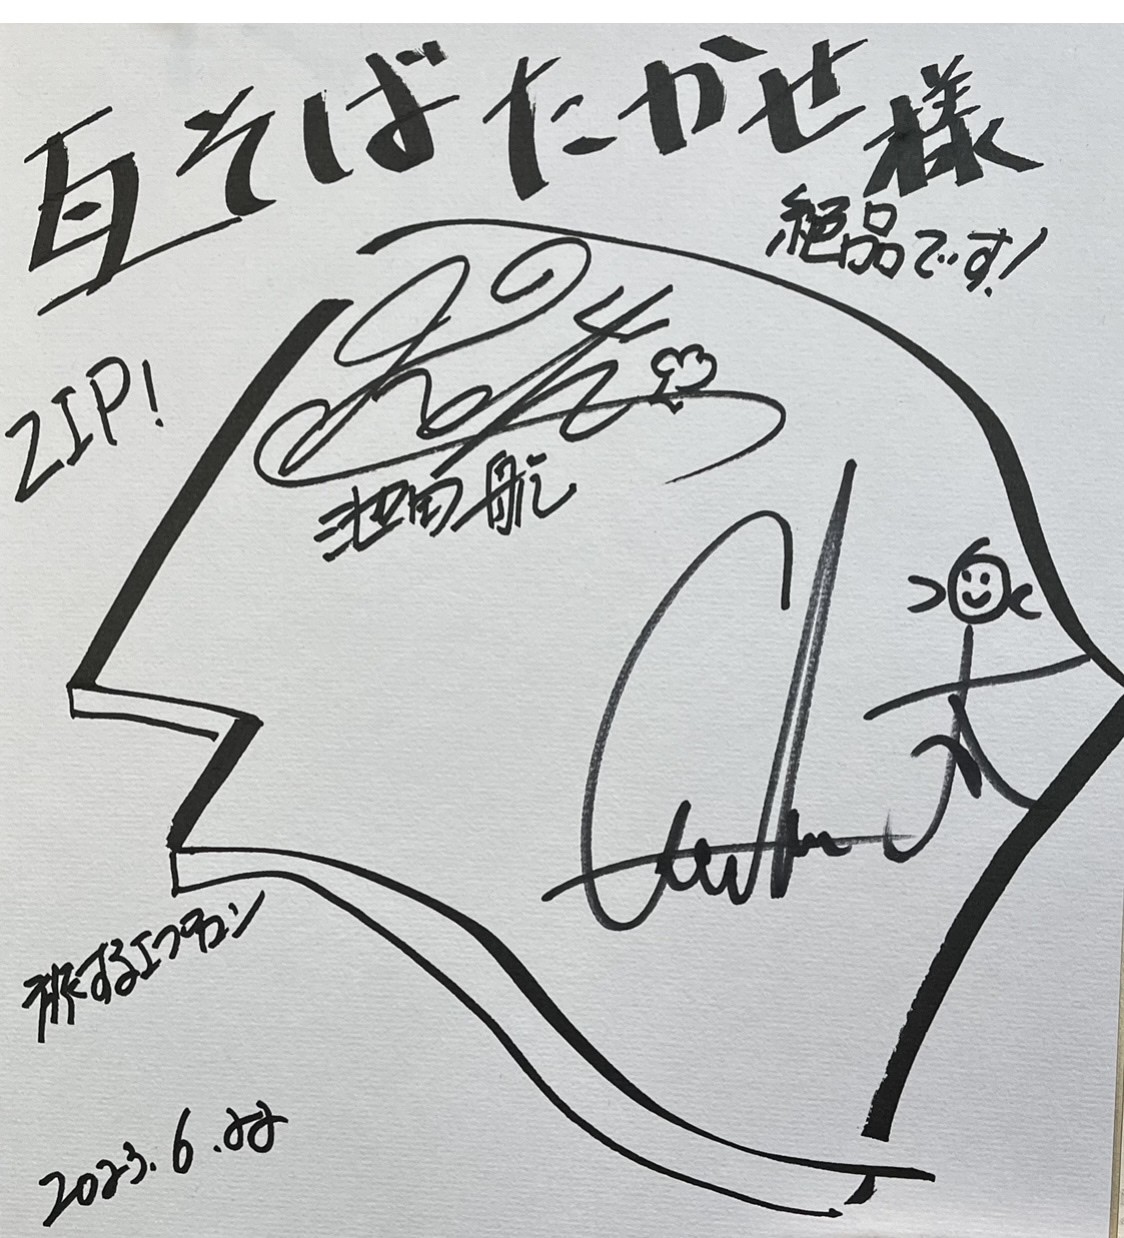 瓦そばたかせ様
絶品です!
ZIP!
池田航
旅するエプロン
2023.6.22